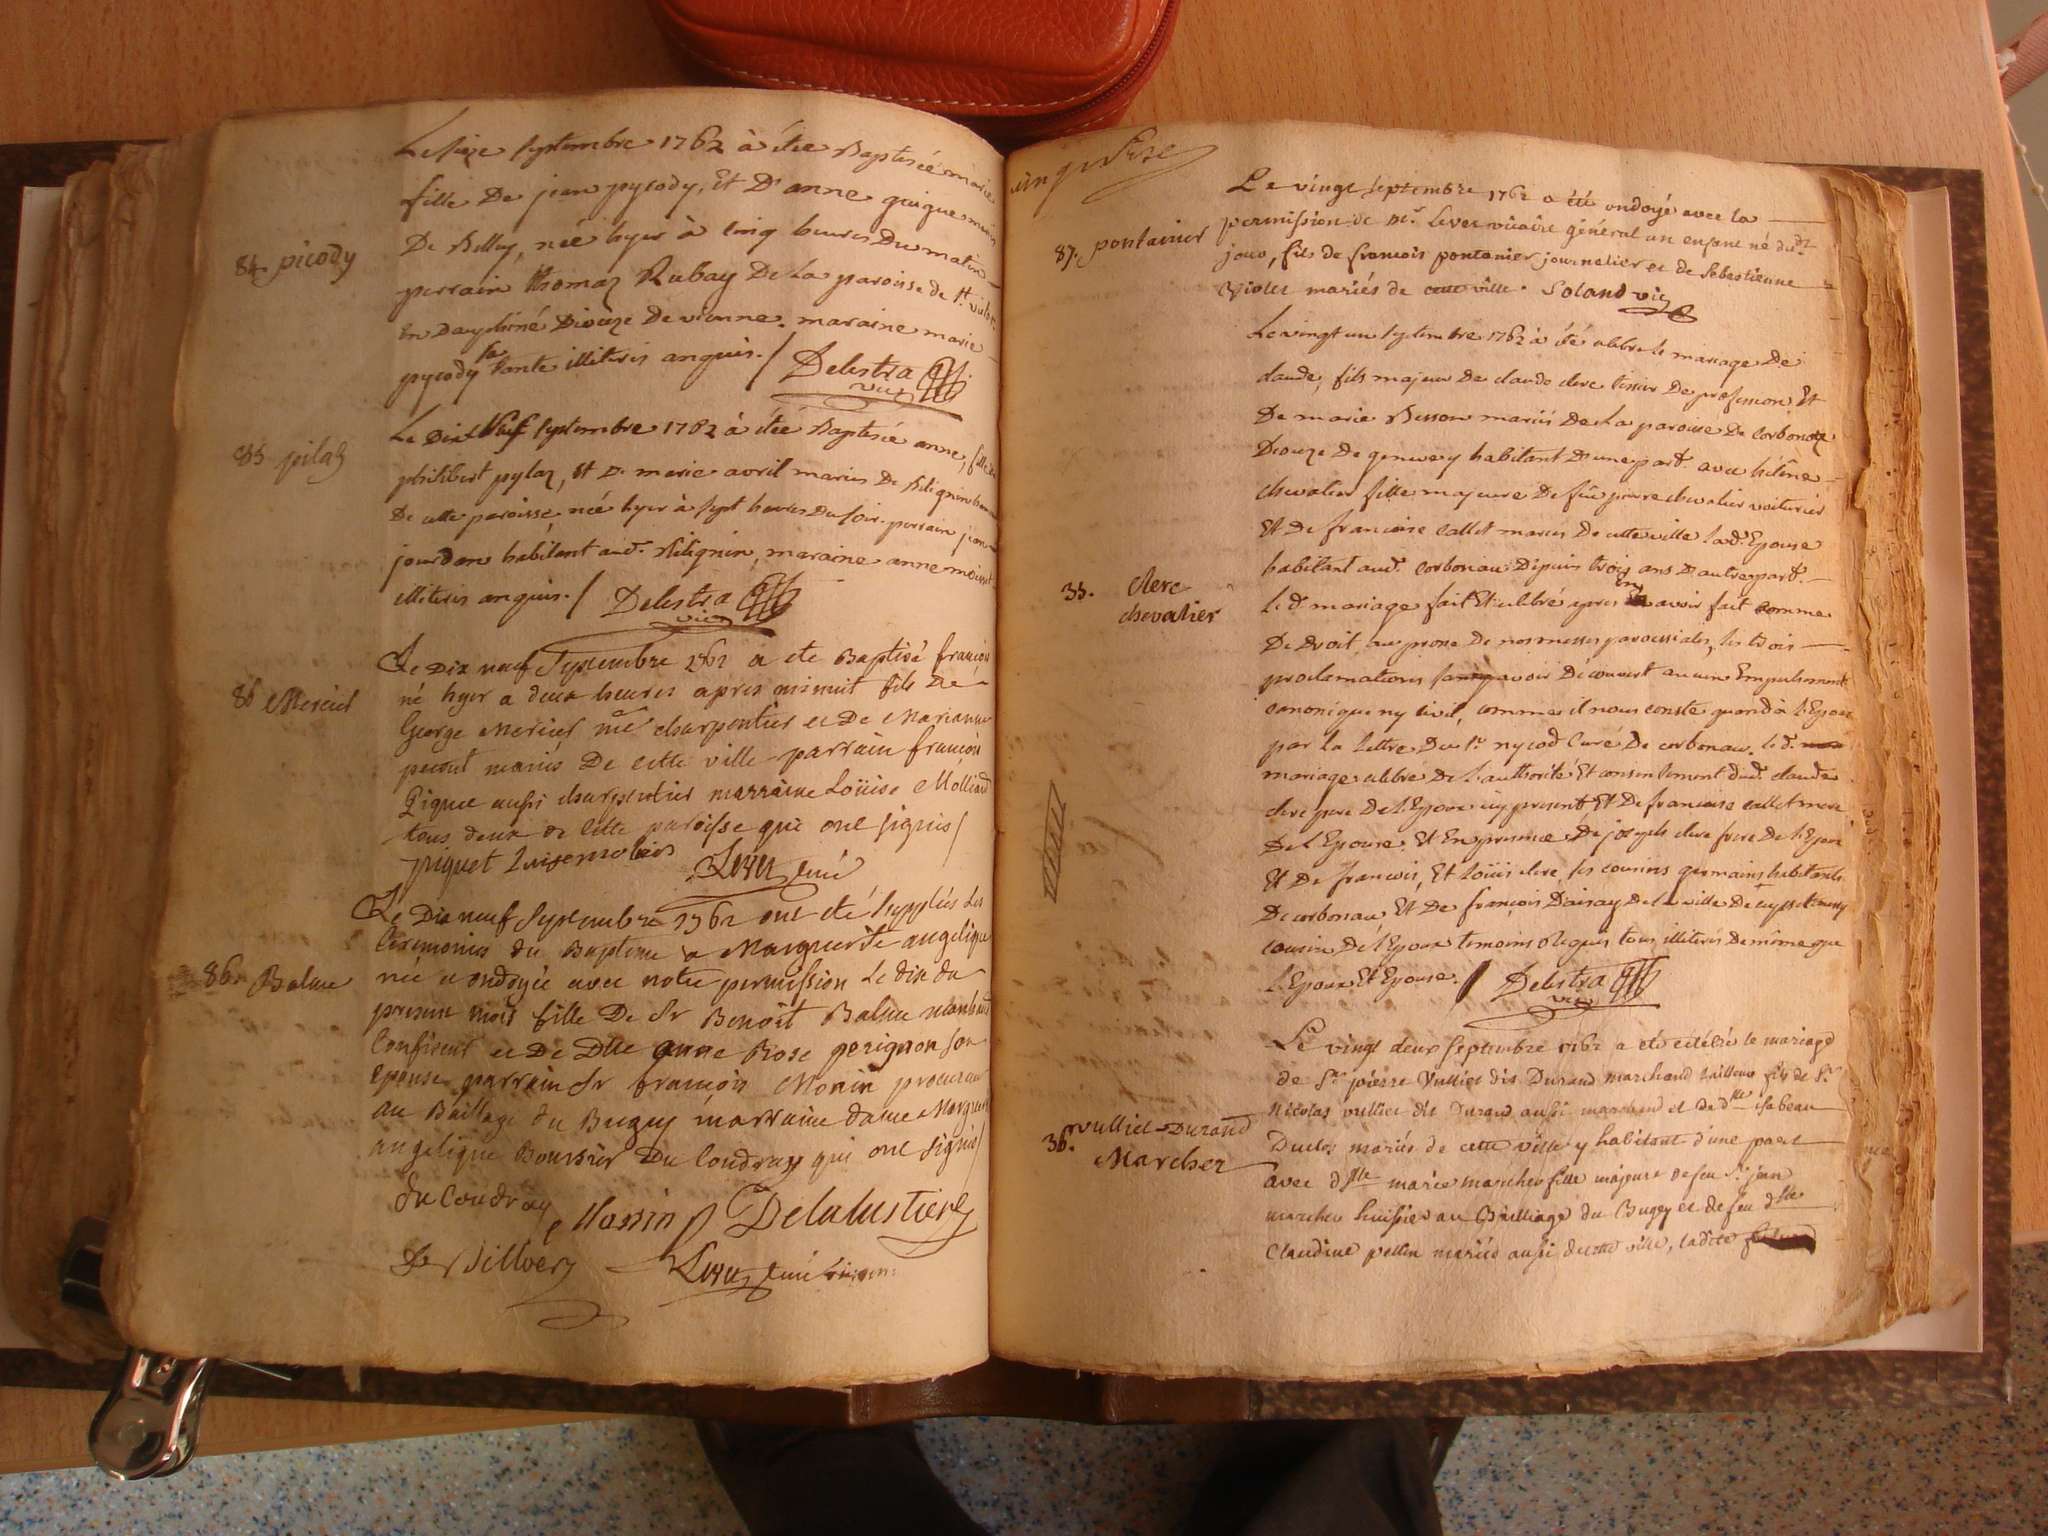 Le seize septembre 1762 à étée Baptisée marie
fille De jean pycody, Et D'anne guigue mariés
De Belley, née hyer à cinq heures Du matin
84. picody
perrain thomas Rubay De La paroisse de st.
En Dauphiné Dioceze De vienne. maraine marie
pycody sa tante illiterés enquis. / Delestra vic
Le Dix Neuf septembre 1762 à étée Baptisée anne, fille de
85 pilaz
philibert pylaz, Et De marie avril mariés De Billignin
De cette paroisse née hyer à sept heures Du soir. perrain jean
jourdan habitant aud. Billignin, maraine anne
illiterés enquis. / Delestra vic
Le Dix neuf Septembre 1762 a eté Baptisé françois
né hyer a deux heures apres minuit fils De
86 Mercier
George Mercier me charpentier et De Marianne
mariés De cette ville parrain françois
Piguet aussi charpentier marraine Loüise Molliard
tous deux de cette paroisse que ont signés /
piguet
curé
Le Dix neuf Septembre 1762 ont eté suppléés Les
Ceremonies du Bapteme a Marguerite angelique
86. Balme
née et ondoyée avec notre permission Le dix du
present mois fille De Sr Benoît Balme marchand
Confiseur et De Dlle anne Rose perignon son
epouse parrain Sr françois Monin procureur
au Baillage du Bugey marraine dame Marguerite
angelique Boursier Du Coudray qui ont signés /
du Coudray Monin Delalustiere
curé
Le vingt septembre 1762 a été ondoyé avec la
87. pontanier
permission de mr. vicaire général un enfant né dudt.
jour, fils de francois pontanier journalier et de Sebestienne
Violet mariés de cette ville. Soland vic
Le vingt un septembre 1762 à été célébré le mariage De
claude, fils majeur De claude clerc tissier De profession Et
De marie Besson mariés De La paroisse De Corbonoz
Dioceze De geneve y habitant D'une part. avec hélêne
chevalier fille majeure De feu pierre chevalier voiturier
Et De francoise Callet mariés De cette ville lad. Epouse
habitant aud. Corbonau Depuis trois ans D'autre part.
35. Clerc
chevalier
Le d. mariage fait Et célébré apres avoir fait comme
De Droit, au prone De nos messes paroissiales, les trois
proclamations sans avoir Découvert aucun Empechement
canonique ny civil, comme il nous conste quand à l'Epoux
par la Lettre Du sr. nycod Curé De Corbonau. le d.
mariage célébré De l'authorité Et consentement dud. claude
clerc pere De l'Epoux icy present, Et De francoise callet mere
De l'Epouse. Et En presence De joseph clerc frere De l'Epoux
Et De francois, Et Loüis clerc, ses cousins germains habitants
De Corbonau Et De françois Dairay De la ville De
cousin De l'Epoux temoins Requis tous illiterés De même que
l'Epoux Et Epouse. / Delestra vic
Le vingt deux septembre 1762 a été célébré le mariage
de Sr. pierre Vulliet dit Durand marchand tailleur fils de Sr.
Nicolas vulliet dit Durand aussi marchand et de dlle. isabeau
36. vulliet-Durand
Marcher
Duclos mariés de cette ville y habitant d'une part
avec dlle marie marcher fille majeure de feu Sr. jean
marcher huissier au Bailliage du Bugey et de feu dlle.
Claudine pellin mariés aussi de cette ville, ladite